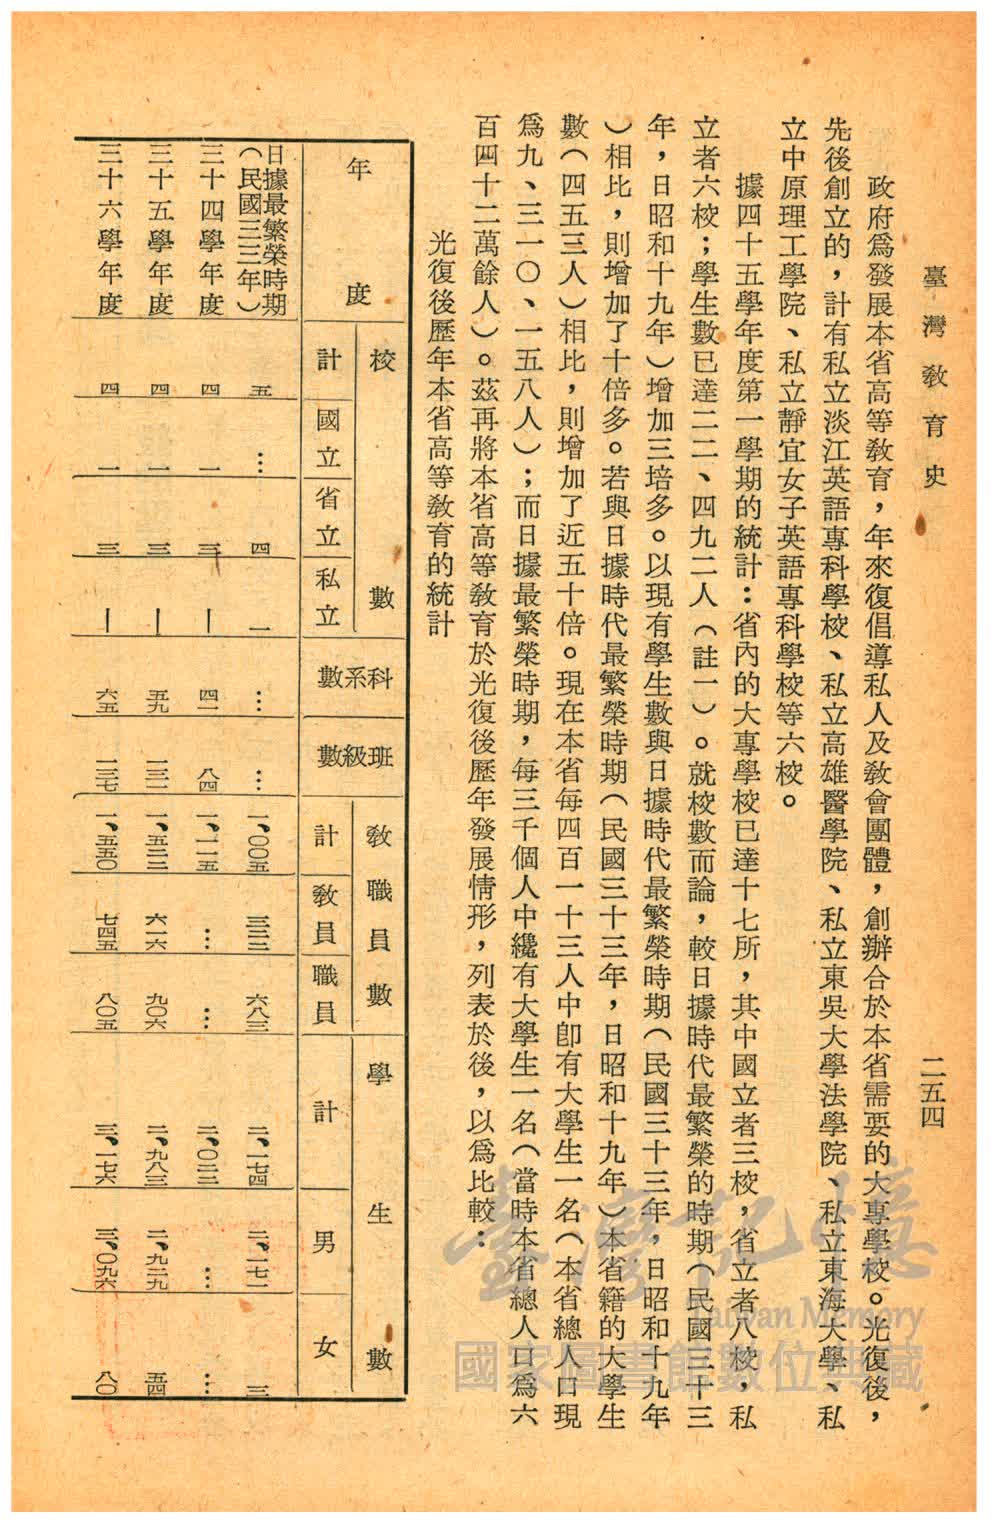 臺灣教育史
二五四
政府爲發展本省高等教育，年來復倡導私人及教會團體，創辦合於本省需要的大專學校。光復後，
先後創立的，計有私立淡江英語專科學校、私立高雄醫學院、私立東吳大學法學院、私立東海大學、私
立中原理工學院、私立靜宜女子英語專科學校等六校。
據四十五學年度第一學期的統計：省內的大專學校已達十七所，其中國立者三校，省立者八校，私
立者六校；學生數已達二二、四九二人（註一）。就校數而論，較日據時代最繁榮的時期（民國三十三
年，日昭和十九年）增加三培多。以現有學生數與日據時代最繁榮時期（民國三十三年，日昭和十九年
）相比，則增加了十倍多。若與日據時代最繁榮時期（民國三十三年，日昭和十九年）本省籍的大學生
數（四五三人）相比，則增加了近五十倍。現在本省每四百一十三人中卽有大學生一名（本省總人口現
爲九、三一〇、一五八人）；而日據最繁榮時期，每三千個人中纔有大學生一名（當時本省總人口爲六
百四十二萬餘人）。茲再將本省高等教育於光復後歷年發展情形，列表於後，以爲比較：
光復後歷年本省高等教育的統計
年度 校數 科系數 班級數 教職員數 學生數
計 國立 省立 私立 計 教員 職員 計 男 女
日據最繁榮時期（民國三三年） 五 … 四 一 … … 一、〇〇五 三二二 六八三 二、一七四 二、一七一 三
三十四學年度 四 一 三 — 四一 八四 一、一一五 … … 二、〇二二 … …
三十五學年度 四 一 三 — 五九 一三一 一、五二二 六一六 九〇六 二、九八三 二、九二九 五四
三十六學年度 四 一 三 — 六五 一三七 一、五五〇 七四五 八〇五 三、一七六 三、〇九六 八〇
臺灣記憶
Taiwan Memory
國家圖書館數位典藏